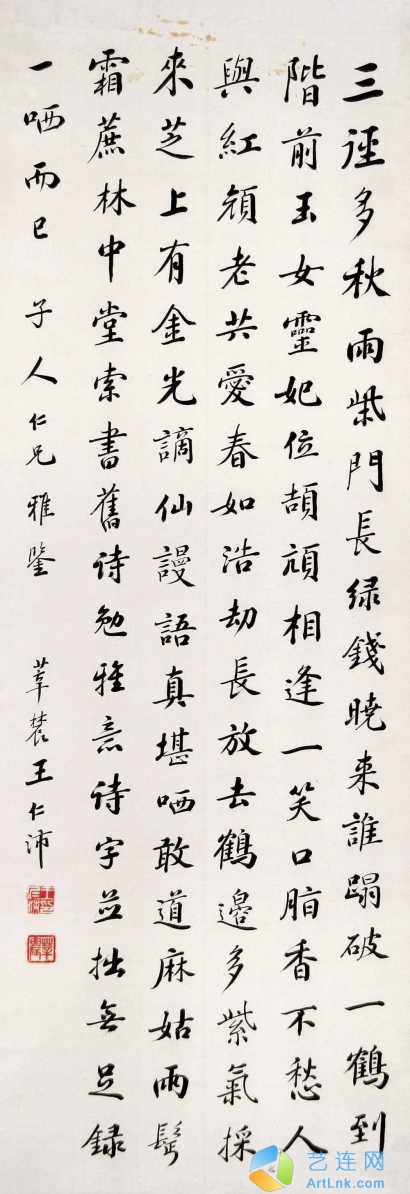 三徑多秋雨柴門長绿錢曉来誰蹋破一鶴到
階前玉女靈妃位頡頏相逢一笑口脂香不愁人
與紅顔老共愛春如浩劫長放去鶴邊多紫氣採
來芝上有金光謫仙謾語真堪哂敢道麻姑兩鬂
霜蔗林中堂索書舊诗勉雅意诗字並拙無足録
一哂而已 子人仁兄雅鑒 莘農王仁沛
艺连网
ArtLnk.com